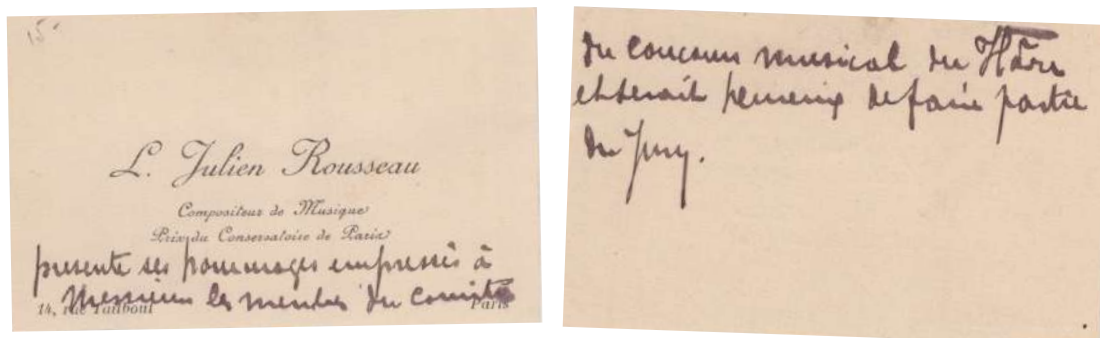 15
L. Julien Rousseau
Compositeur de Musique
Prix du Conservatoire de Paris
présente ses hommages empressés à
Messieurs les membres du comité
14, rue Taitbout Paris
du concours musical du Hâvre
et serait heureux de faire partie
du Jury.